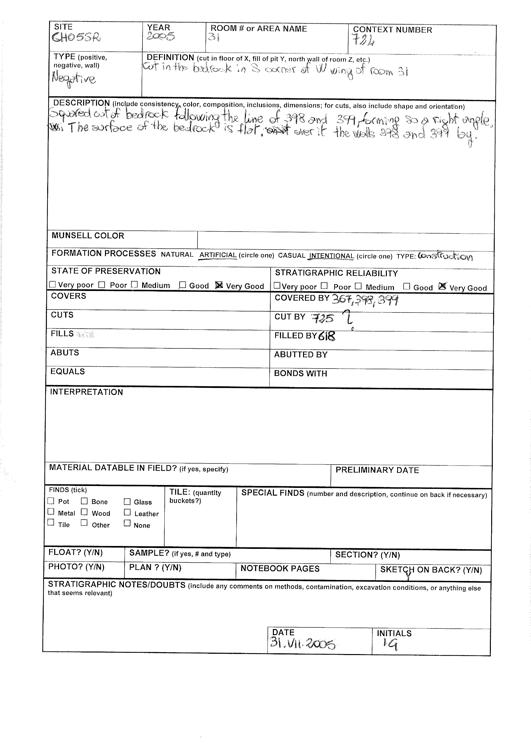 SITE
CH05SR
YEAR
2005
ROOM # or AREA NAME
31
CONTEXT NUMBER
724
TYPE (positive, negative, wall)
Negative
DEFINITION (cut in floor of X, fill of pit Y, north wall of room Z, etc.)
Cut in the bedrock in S corner of W wing of room 31
DESCRIPTION (include consistency, color, composition, inclusions, dimensions; for cuts, also include shape and orientation)
Squared cut of bedrock following the line of 398 and 399, forming so a right angle,
The surface of the bedrock is flat, over it the walls 398 and 399 by.
MUNSELL COLOR
FORMATION PROCESSES NATURAL ARTIFICIAL (circle one) CASUAL INTENTIONAL (circle one) TYPE: Construction
STATE OF PRESERVATION
STRATIGRAPHIC RELIABILITY
☐ Very poor ☐ Poor ☐ Medium ☐ Good ☒ Very Good
☐ Very poor ☐ Poor ☐ Medium ☐ Good ☒ Very Good
COVERS
COVERED BY 367, 398, 399
CUTS
CUT BY 725 ?
FILLS
FILLED BY 618
ABUTS
ABUTTED BY
EQUALS
BONDS WITH
INTERPRETATION
MATERIAL DATABLE IN FIELD? (if yes, specify)
PRELIMINARY DATE
FINDS (tick)
☐ Pot ☐ Bone ☐ Glass
☐ Metal ☐ Wood ☐ Leather
☐ Tile ☐ Other ☐ None
TILE: (quantity buckets?)
SPECIAL FINDS (number and description, continue on back if necessary)
FLOAT? (Y/N)
SAMPLE? (if yes, # and type)
SECTION? (Y/N)
PHOTO? (Y/N)
PLAN ? (Y/N)
NOTEBOOK PAGES
SKETCH ON BACK? (Y/N)
STRATIGRAPHIC NOTES/DOUBTS (include any comments on methods, contamination, excavation conditions, or anything else
that seems relevant)
DATE
31.VII.2005
INITIALS
IG